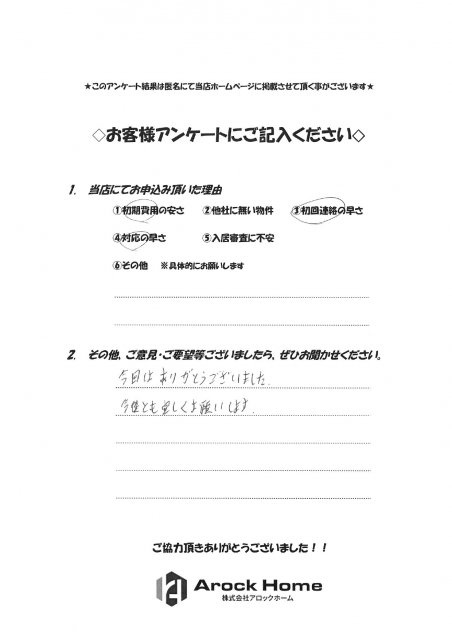 ★このアンケート結果は匿名にて当店ホームページに掲載させて頂く事がございます★
◇お客様アンケートにご記入ください◇
1. 当店にてお申込み頂いた理由
①初期費用の安さ ②他社に無い物件 ③初回連絡の早さ
④対応の早さ ⑤入居審査に不安
⑥その他 ※具体的にお願いします
2. その他、ご意見・ご要望等ございましたら、ぜひお聞かせください。
今日はありがとうございました.
今後とも宜しくお願いします.
ご協力頂きありがとうございました！！
Arock Home
株式会社アロックホーム